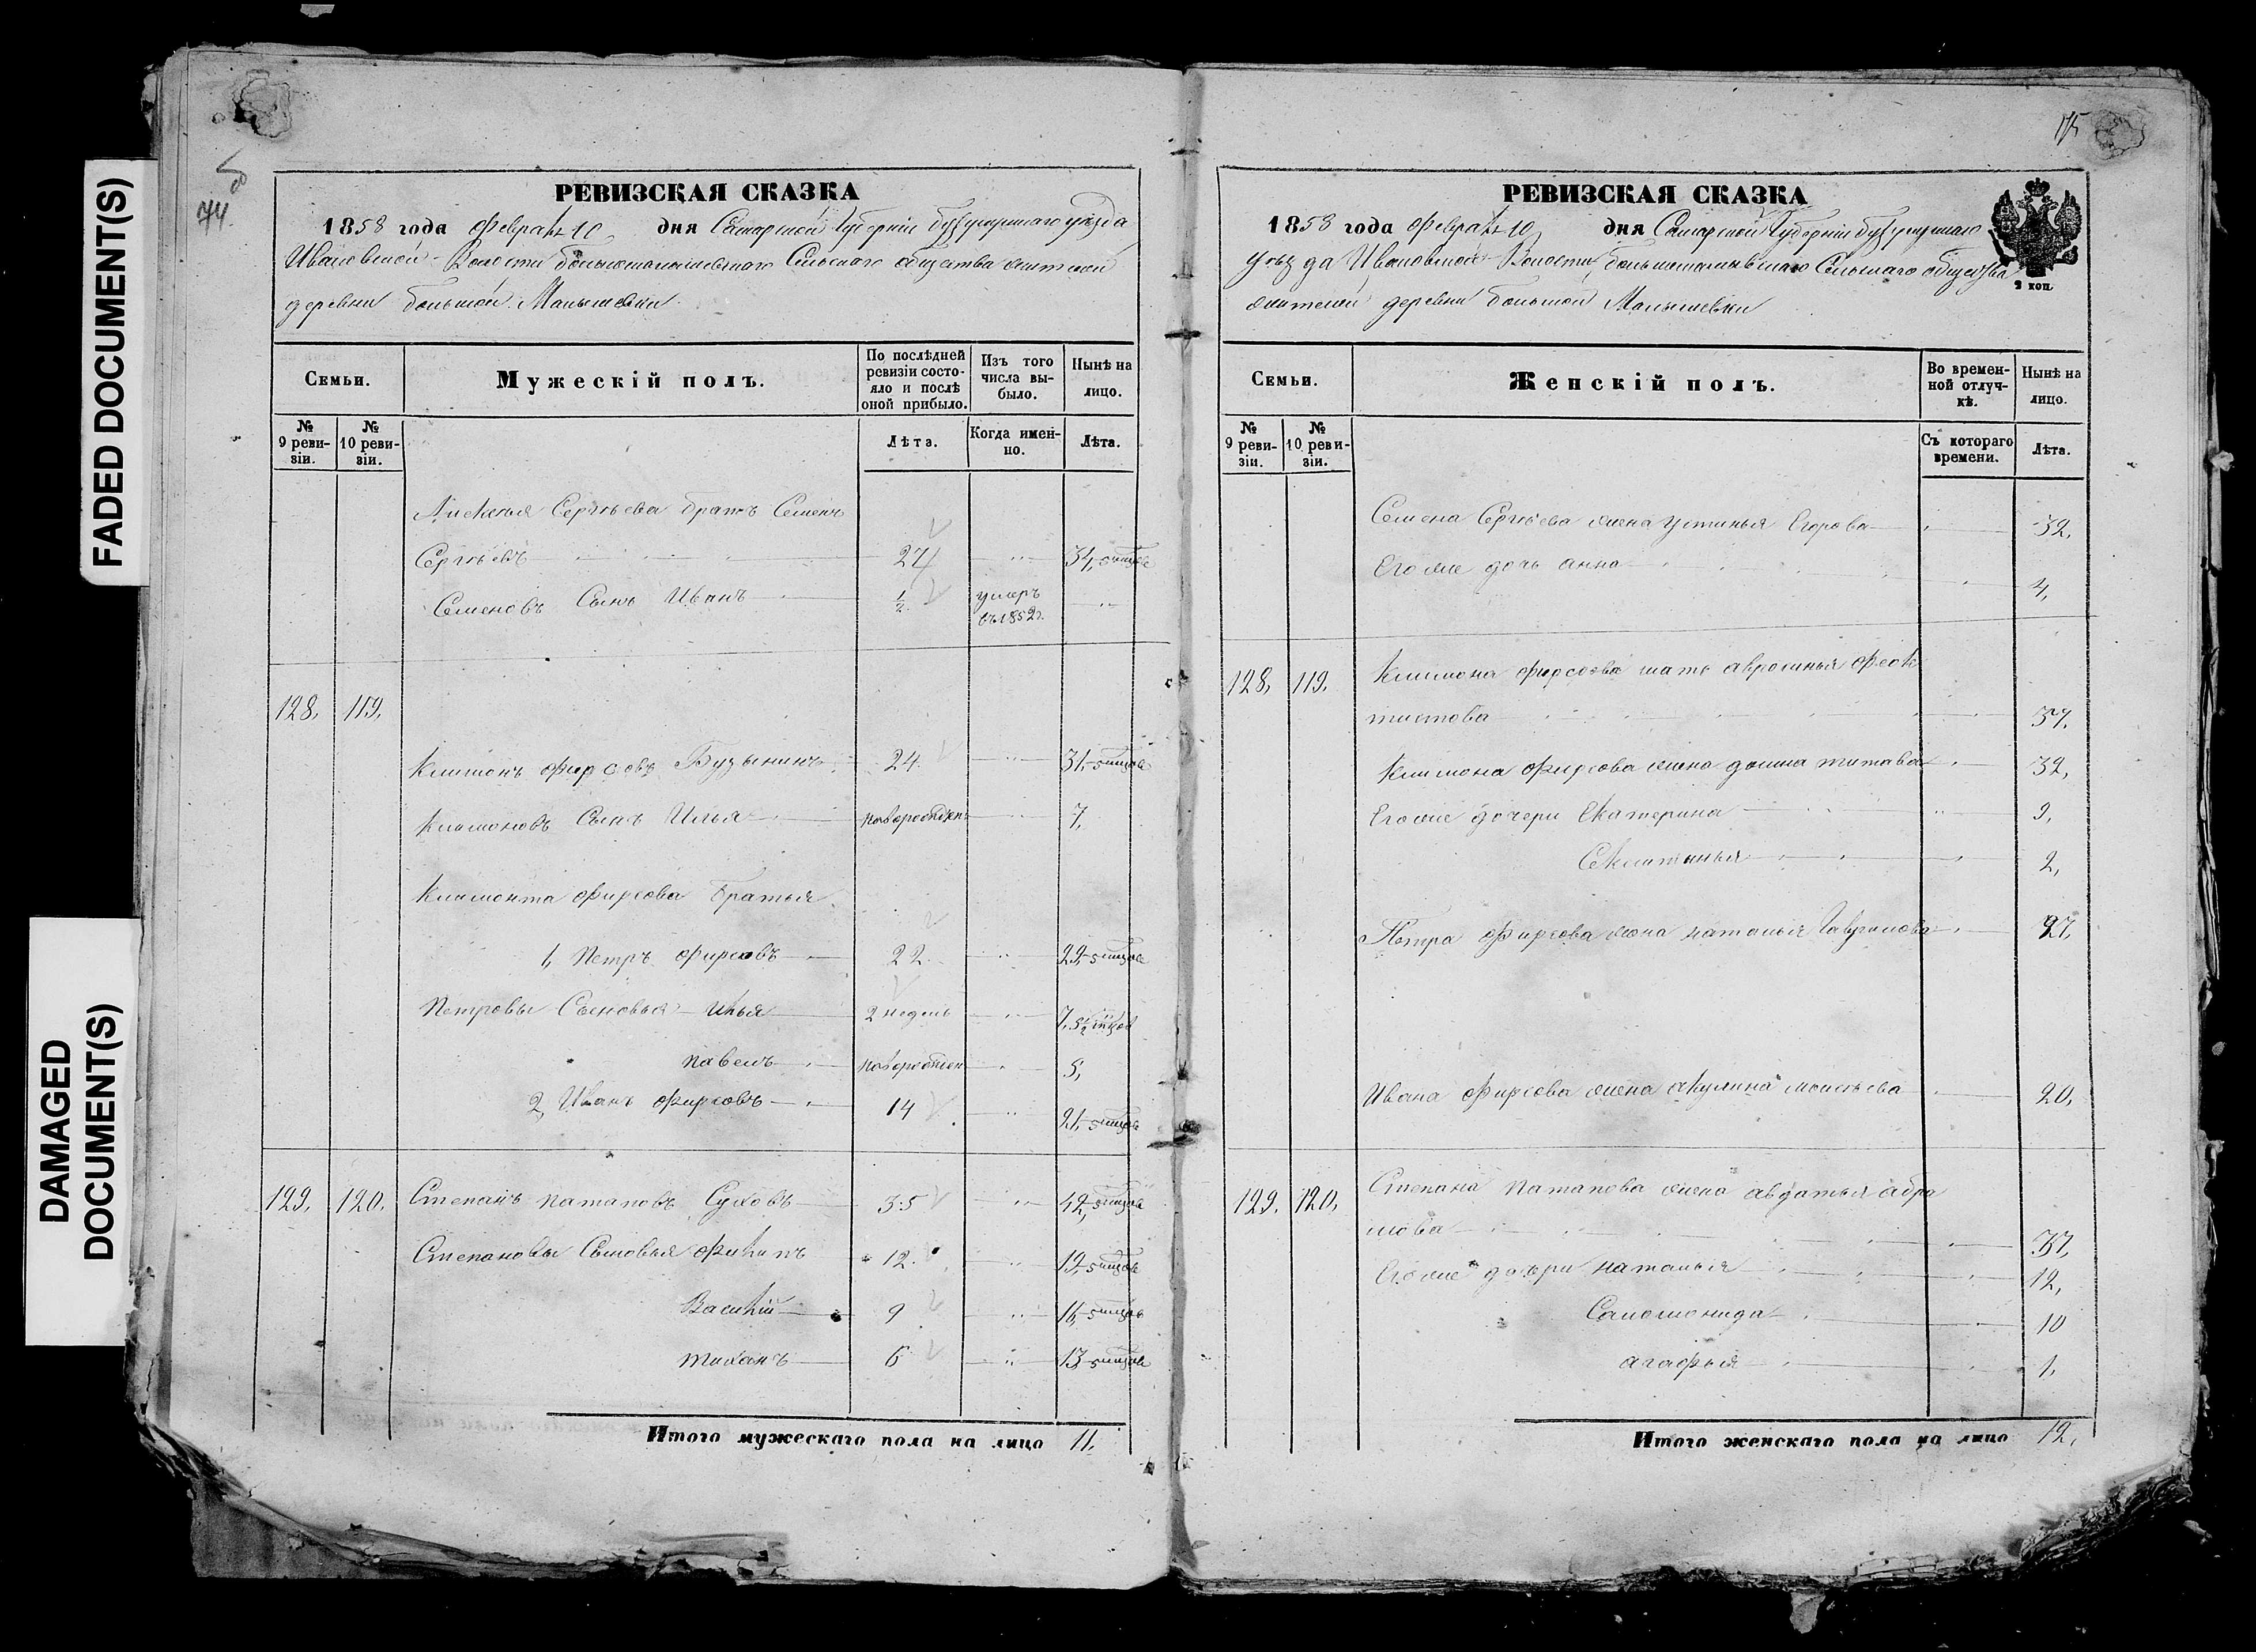 FADED DOCUMENT(S)
DAMAGED
DOCUMENT(S)
74.
РЕВИЗСКАЯ СКАЗКА
1858 года Февраля 10 дня Самарской Губерніи Бугурусланского уѣзда
Ивановской Волости большемалышевского Сельского общества
деревни большой Малышевки
Семьи.
Мужескій полъ.
По послѣдней ревизіи состояло и послѣ оной прибыло.
Изъ того числа выбыло.
Нынѣ на лицо.
№ 9 ревизіи.
№ 10 ревизіи.
Лѣта.
Когда именно.
Лѣта.
Алексѣя Сергѣева братъ Семенъ
Сергѣевъ 27 34,
Семеновъ Сынъ Иванъ 1/2 умеръ въ 1852 г.
128, 119,
Климонъ Фирсовъ Бузынинъ 24 31,
Климоновъ Сынъ Илья 7,
Климонта Фирсова Братья
1, Петръ Фирсовъ 22 29,
Петровы Сыновья Илья 2 недель 7,
павелъ 5,
2, Иванъ Фирсовъ 14 21,
129, 120, Степанъ Патаповъ Суховъ 35 42,
Степановы Сыновья Филипъ 12 19,
Василій 9 16,
тиханъ 6 13,
Итого мужескаго пола на лицо 11,
175
РЕВИЗСКАЯ СКАЗКА
1858 года Февраля 10 дня Самарской Губерніи Бугурусланского
уѣзда Ивановской Волости, большемалышевского Сельского общества
жителей деревни большой Малышевки
2 коп.
Семьи.
Женскій полъ.
Во временной отлучкѣ.
Нынѣ на лицо.
№ 9 ревизіи.
№ 10 ревизіи.
Съ котораго времени.
Лѣта.
Семена Сергѣева жена устинья Егорова 32,
Его же дочь анна 4,
128, 119, Климона Фирсова мать авросинья Феок
тистова 57,
Климона Фирсова жена домна титава 32,
Его же дочери Екатерина 9,
Секлитинья 2,
Петра Фирсова жена наталья Гаврилова 27,
Ивана Фирсова жена акулина моисѣева 20,
129, 120, Степана Патапова жена авдатья абра
мова 37,
Его же дочери наталья 12,
Саломонида 10
агафья 1,
Итого женскаго пола на лицо 12,